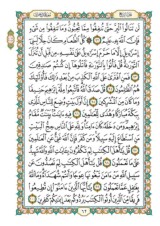 لَن تَنَالُوا الْبِرَّ حَتَّىٰ تُنفِقُوا مِمَّا تُحِبُّونَ وَمَا تُنفِقُوا مِن شَيْءٍ
فَإِنَّ اللَّهَ بِهِ عَلِيمٌ ٩٢ كُلُّ الطَّعَامِ كَانَ حِلًّا لِّبَنِي
إِسْرَائِيلَ إِلَّا مَا حَرَّمَ إِسْرَائِيلُ عَلَىٰ نَفْسِهِ مِن قَبْلِ أَن تُنَزَّلَ
التَّوْرَاةُ قُلْ فَأْتُوا بِالتَّوْرَاةِ فَاتْلُوهَا إِن كُنتُمْ صَادِقِينَ ٩٣
فَمَنِ افْتَرَىٰ عَلَى اللَّهِ الْكَذِبَ مِن بَعْدِ ذَٰلِكَ فَأُولَٰئِكَ
هُمُ الظَّالِمُونَ ٩٤ قُلْ صَدَقَ اللَّهُ فَاتَّبِعُوا مِلَّةَ إِبْرَاهِيمَ حَنِيفًا
وَمَا كَانَ مِنَ الْمُشْرِكِينَ ٩٥ إِنَّ أَوَّلَ بَيْتٍ وُضِعَ لِلنَّاسِ لَلَّذِي
بِبَكَّةَ مُبَارَكًا وَهُدًى لِّلْعَالَمِينَ ٩٦ فِيهِ آيَاتٌ بَيِّنَاتٌ مَّقَامُ
إِبْرَاهِيمَ وَمَن دَخَلَهُ كَانَ آمِنًا وَلِلَّهِ عَلَى النَّاسِ حِجُّ الْبَيْتِ
مَنِ اسْتَطَاعَ إِلَيْهِ سَبِيلًا وَمَن كَفَرَ فَإِنَّ اللَّهَ غَنِيٌّ عَنِ الْعَالَمِينَ ٩٧
قُلْ يَا أَهْلَ الْكِتَابِ لِمَ تَكْفُرُونَ بِآيَاتِ اللَّهِ وَاللَّهُ شَهِيدٌ
عَلَىٰ مَا تَعْمَلُونَ ٩٨ قُلْ يَا أَهْلَ الْكِتَابِ لِمَ تَصُدُّونَ عَن
سَبِيلِ اللَّهِ مَنْ آمَنَ تَبْغُونَهَا عِوَجًا وَأَنتُمْ شُهَدَاءُ وَمَا اللَّهُ
بِغَافِلٍ عَمَّا تَعْمَلُونَ ٩٩ يَا أَيُّهَا الَّذِينَ آمَنُوا إِن تُطِيعُوا
فَرِيقًا مِّنَ الَّذِينَ أُوتُوا الْكِتَابَ يَرُدُّوكُم بَعْدَ إِيمَانِكُمْ كَافِرِينَ ١٠٠
٦٢